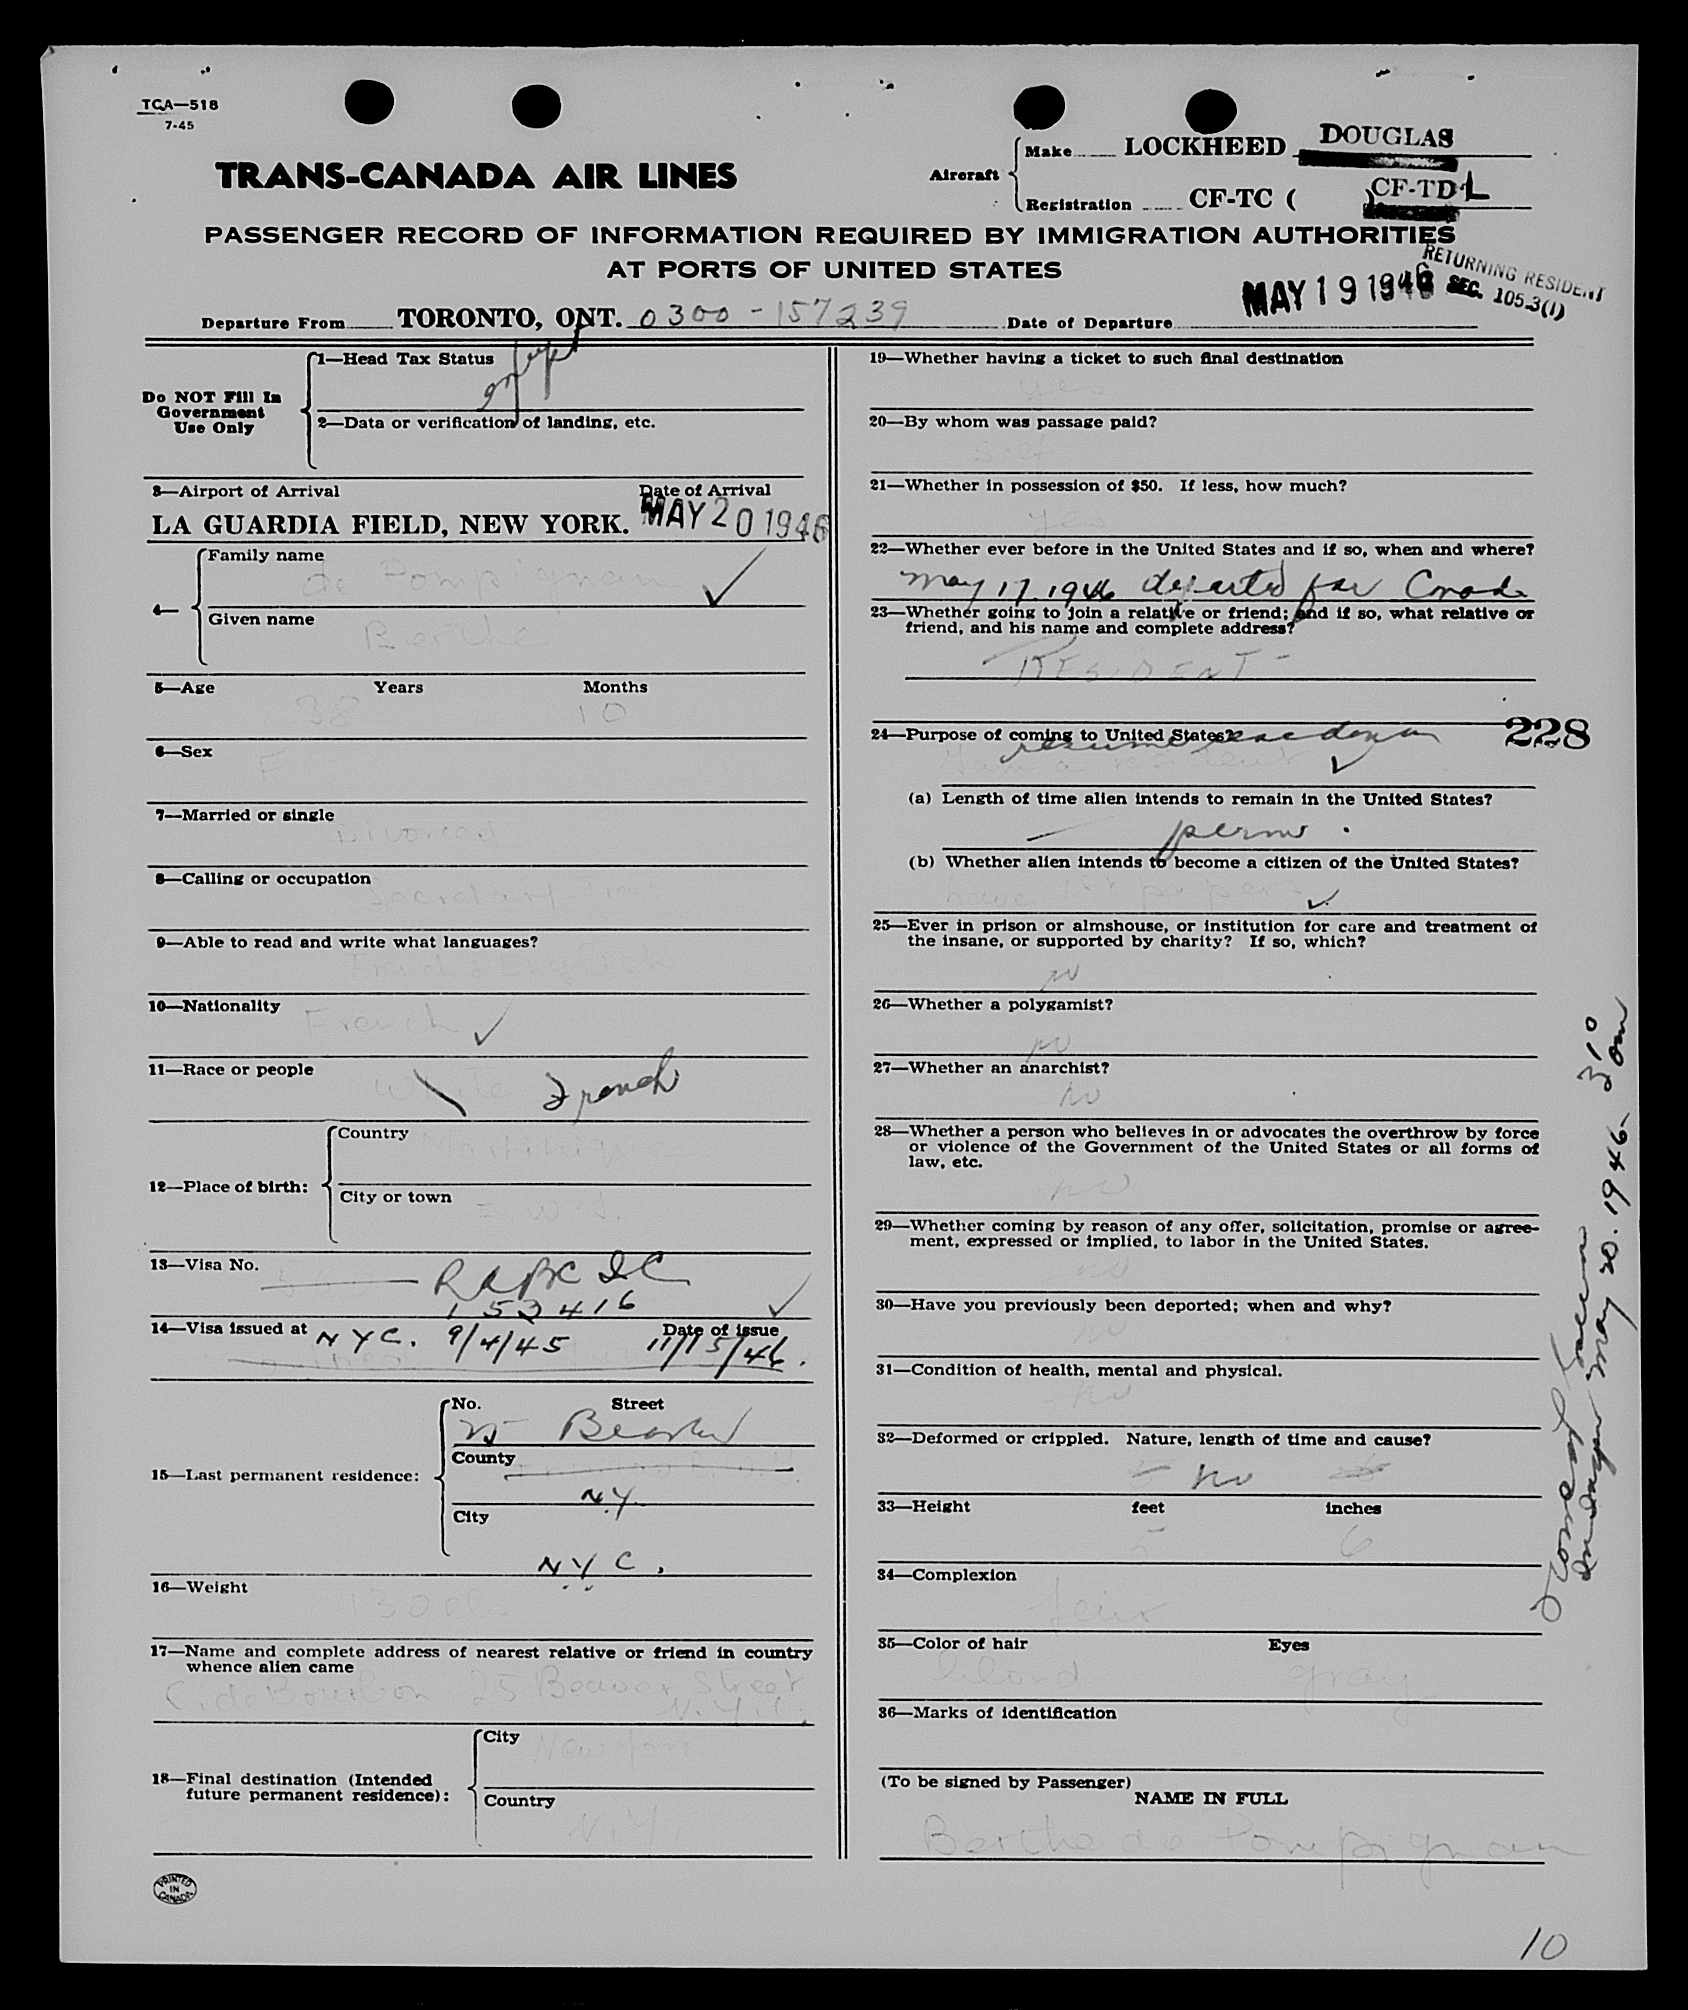 TCA—518
7-45
TRANS-CANADA AIR LINES
Aircraft
Make LOCKHEED DOUGLAS
Registration CF-TC ( ) CF-TD L
PASSENGER RECORD OF INFORMATION REQUIRED BY IMMIGRATION AUTHORITIES
AT PORTS OF UNITED STATES
RETURNING RESIDENT
SEC. 105.3(1)
Departure From TORONTO, ONT. 0300-157239 Date of Departure MAY 19 1946
Do NOT Fill In
Government
Use Only
1—Head Tax Status
2—Data or verification of landing, etc.
3—Airport of Arrival Date of Arrival
LA GUARDIA FIELD, NEW YORK. MAY 20 1946
4—
Family name
de Pompignan
Given name
Berthe
5—Age Years Months
38 10
6—Sex
F
7—Married or single
Divorced
8—Calling or occupation
Secretary
9—Able to read and write what languages?
French & English
10—Nationality
French
11—Race or people
White French
12—Place of birth:
Country
Martinique
City or town
F.W.I.
13—Visa No.
153416
14—Visa issued at NYC. 9/4/45 Date of issue
11/15/46.
15—Last permanent residence:
No. Street
25 Beaver
County
N.Y.
City
NYC.
16—Weight
130
17—Name and complete address of nearest relative or friend in country
whence alien came
C. de Bourbon 25 Beaver Street
N.Y.C.
18—Final destination (Intended
future permanent residence):
City
New York
Country
N.Y.
19—Whether having a ticket to such final destination
yes
20—By whom was passage paid?
self
21—Whether in possession of $50. If less, how much?
yes
22—Whether ever before in the United States and if so, when and where?
May 17. 1946 departed for Canada
23—Whether going to join a relative or friend; and if so, what relative or
friend, and his name and complete address?
RESIDENT-
24—Purpose of coming to United States?
resume residence
228
(a) Length of time alien intends to remain in the United States?
— perm.
(b) Whether alien intends to become a citizen of the United States?
have 1st paper
25—Ever in prison or almshouse, or institution for care and treatment of
the insane, or supported by charity? If so, which?
no
26—Whether a polygamist?
no
27—Whether an anarchist?
no
28—Whether a person who believes in or advocates the overthrow by force
or violence of the Government of the United States or all forms of
law, etc.
no
29—Whether coming by reason of any offer, solicitation, promise or agree-
ment, expressed or implied, to labor in the United States.
no
30—Have you previously been deported; when and why?
no
31—Condition of health, mental and physical.
no
32—Deformed or crippled. Nature, length of time and cause?
no
33—Height feet inches
5 6
34—Complexion
fair
35—Color of hair Eyes
blond gray
36—Marks of identification
(To be signed by Passenger)
NAME IN FULL
Berthe de Pompignan
May 20. 1946- 3 10 am
PRINTED
IN
CANADA
10